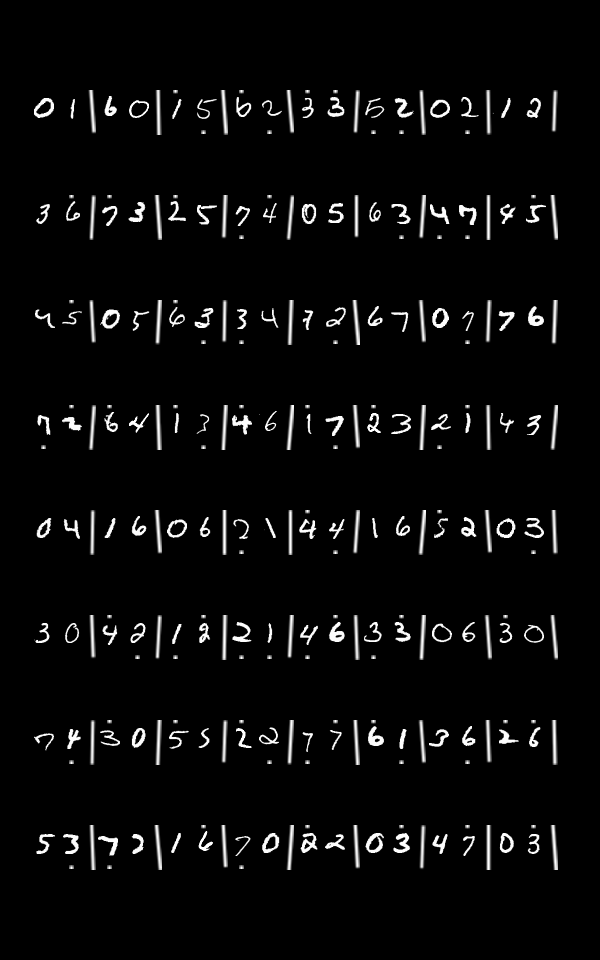 0 1 | 6 0 | 1̇ 5̣ | 6̇ 2̣ | 3̇ 3̇ | 5̣ 2̣ | 0 2̣ | 1 2 |
3 6̇ | 7̇ 3 | 2̇ 5 | 7̣ 4̇ | 0 5 | 6 3̣ | 4̣ 7̣ | 4 5̇ |
4 5̇ | 0 5 | 6̇ 3̣ | 3̣ 4 | 7 2̣ | 6 7 | 0 7̣ | 7 6 |
7̣ 2̇ | 6̇ 4 | 1̇ 3̣ | 4̇ 6 | 1̇ 7̣ | 2̇ 3 | 2̣ 1̇ | 4 3 |
0 4 | 1 6 | 0 6 | 2̣ 1 | 4̇ 4̣ | 1 6 | 5̇ 2 | 0 3̣ |
3 0 | 4̇ 2̣ | 1̣ 2̇ | 2̣ 1̣ | 4̣ 6̇ | 3̣ 3̇ | 0 6 | 3̇ 0 |
7 4̣ | 3̇ 0 | 5̇ 5 | 2̇ 2̣ | 7̣ 7̇ | 6̇ 1̣ | 3 6̣ | 2̇ 6̇ |
5 3̣ | 7̣ 2 | 1 6̇ | 7̣ 0 | 2̇ 2 | 0 3̇ | 4 7̇ | 0 3̇ |